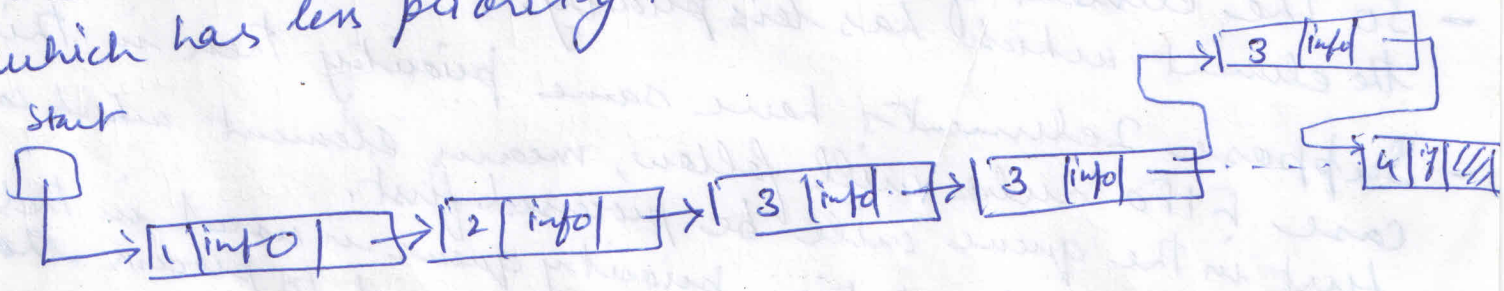 which has less priority.
Start
3 info
1 info 2 info 3 info 3 info 4